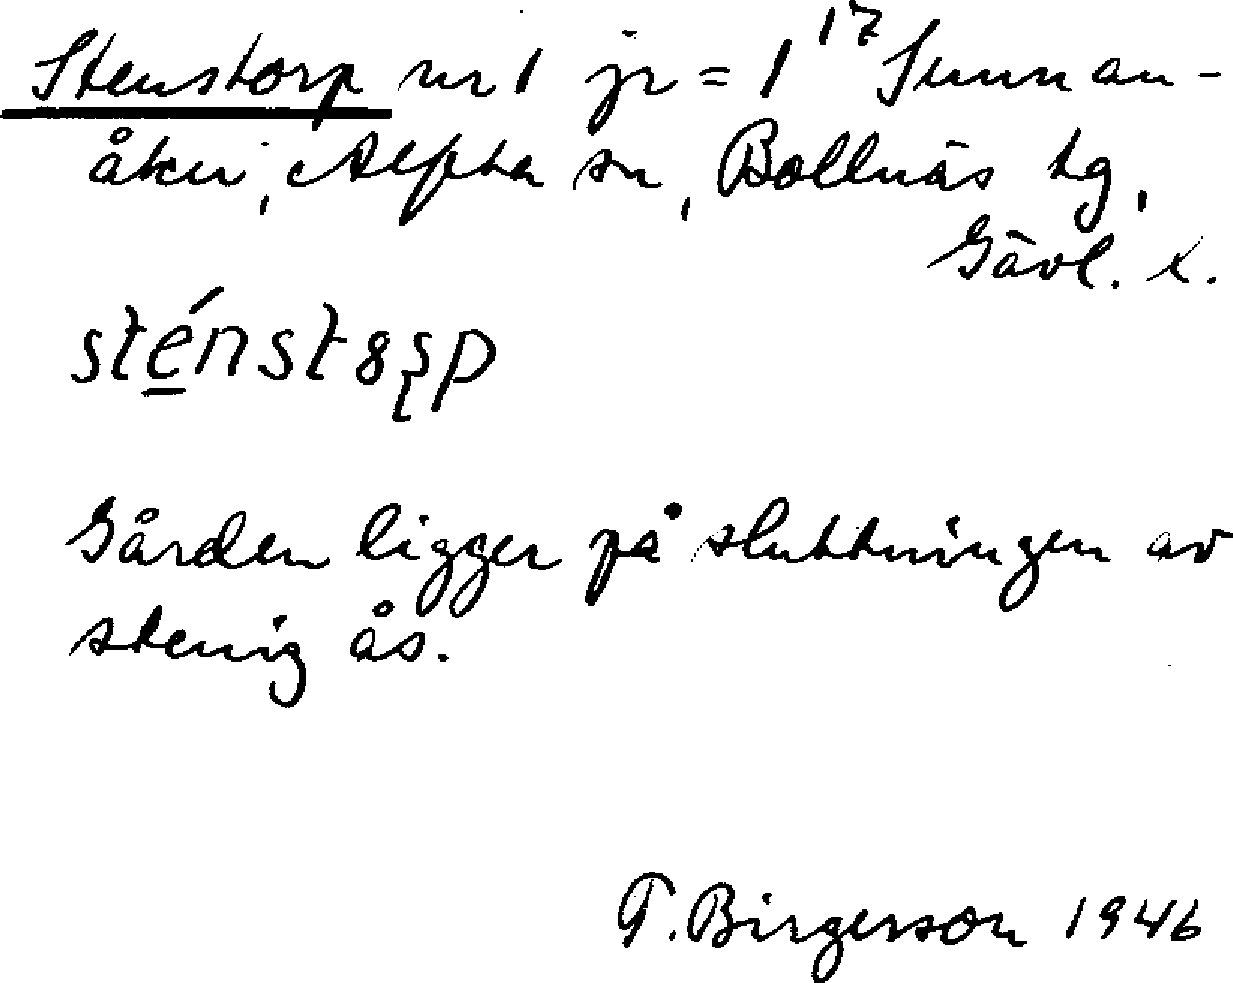 Stenstorp nr 1 jr = 1¹⁷ Sunnan-
åker, Alfta sn, Bollnäs tg,
Gävl. l.
sténst8
Gården ligger på sluttningen av
stenig ås.
T. Birgerson 1946